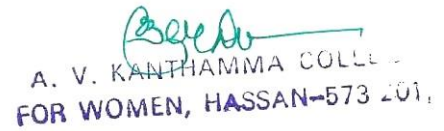 A. V. KANTHAMMA COLL
FOR WOMEN, HASSAN-573 201.